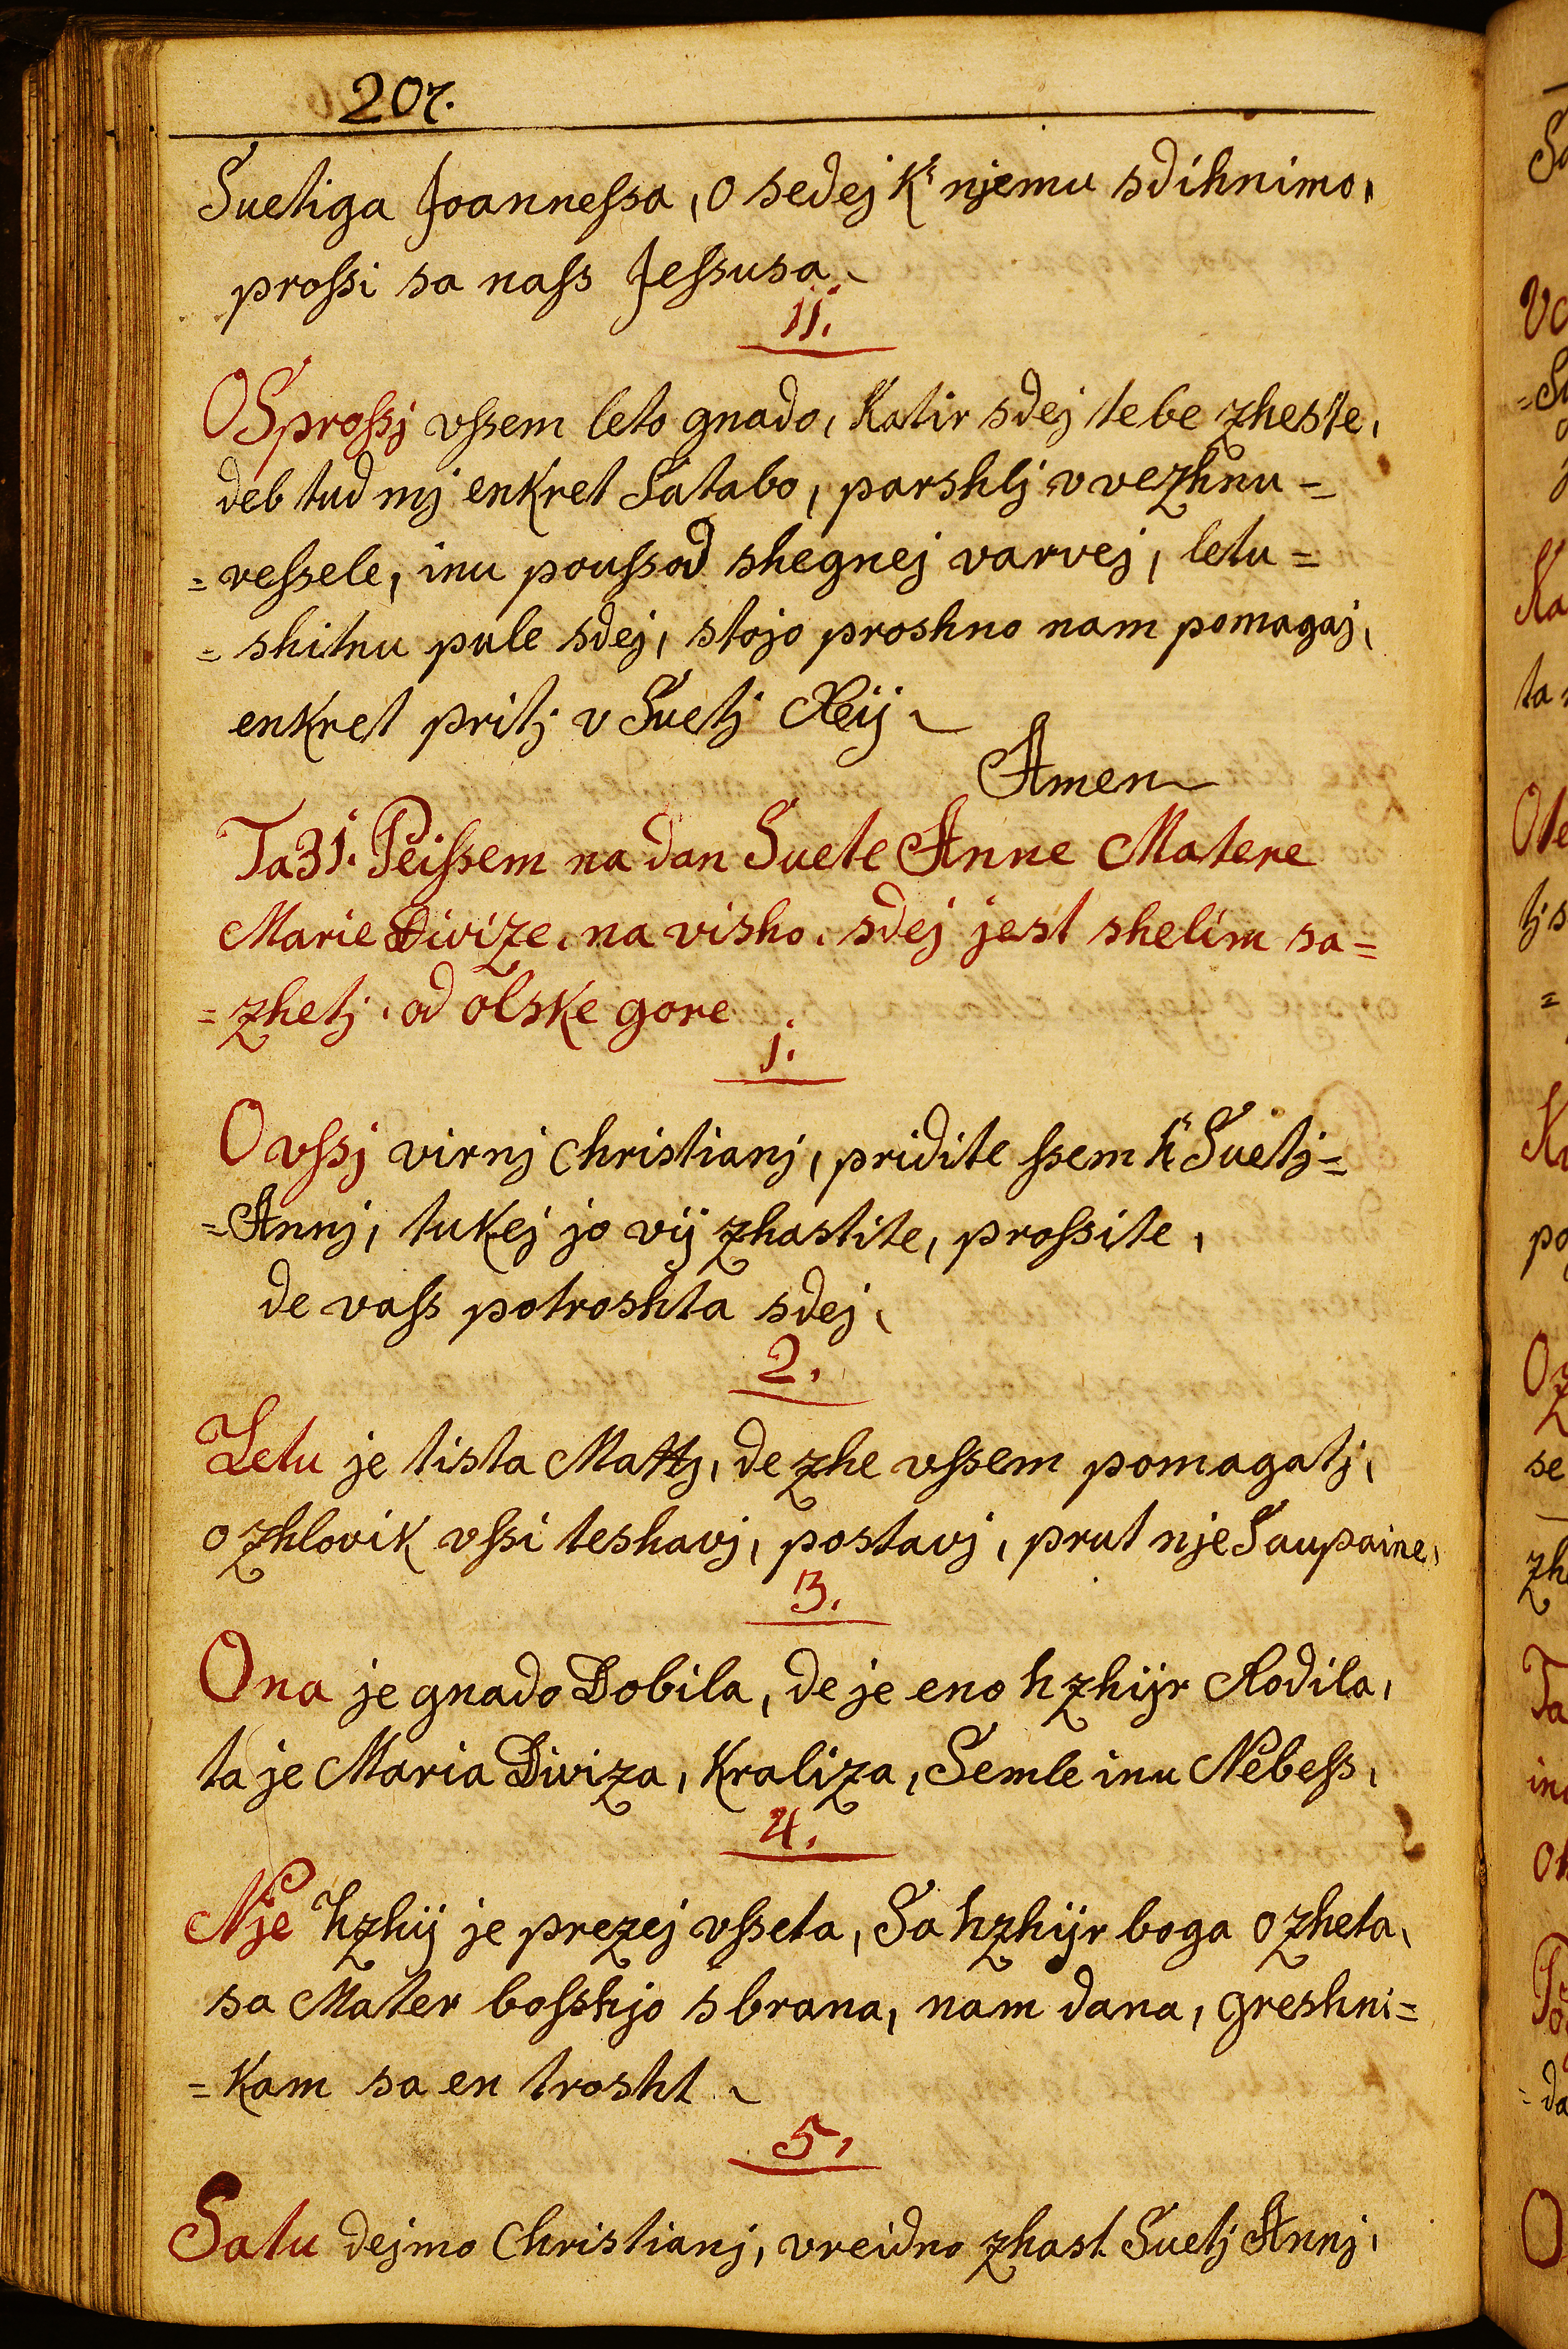 207.
Suetiga Joannessa, o sedej K' njemu sdihnimo,
prossi sa nass Jessusa.
11.
O Sprossj vssem leto gnado, Katir sdej tebe zheste,
deb tud mj enkret Satabo, parshlj v vezhnu =
= vessele, inu poussod shegnej varvej, letu =
= shitnu pule sdej, stojo proshno nam pomagaj,
enkret pritj v Suetj Reij.
Amen
Ta 31. Peissem na dan Suete Anne Matere
Marie Divize, na visho, sdej jest shelim sa=
= zhetj, od olske gore
1.
O vssj virnj Christianj, pridite ssem k' Suetj =
= Annj, tukej jo vij zhastite, prossite,
de vass potroshta sdej,
2.
Letu je tista Mattj, de zhe vssem pomagatj,
o zhlovik vssi teshavj, postavj, prut nje Saupaine,
3.
Ona je gnado Dobila, de je eno hzhijr Rodila,
ta je Maria Diviza, Kraliza, Semle inu Nebess,
4.
Nje hzhij je prezej vsseta, Sa hzhijr boga ozheta,
sa Mater bosshjo sbrana, nam dana, greshni=
= Kam sa en trosht.
5.
Satu dejmo Christianj, vreidno zhast Suetj Annj,